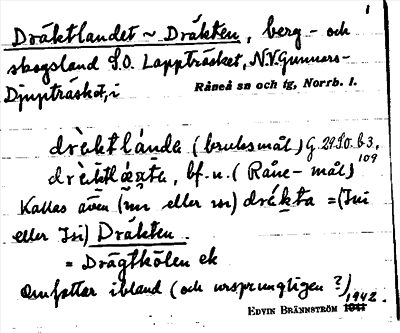 1
Dräktlandet ~ Dräkten, berg- och
skogsland S.O. Lappträsket, N.V. Gunnars-
Djupträsket, i Råneå sn och tg, Norrb. l.
dräktlánda (bruksmål) G 29 S.O. b 3,
109
bf. u. (Råne-mål)
Kallas även (nu eller nu) drákta = (Ini
eller Isi) Dräkten.
= Drägtkölen ek
Omfattar ibland (och ursprungligen?)
EDVIN BRÄNNSTRÖM 1942.